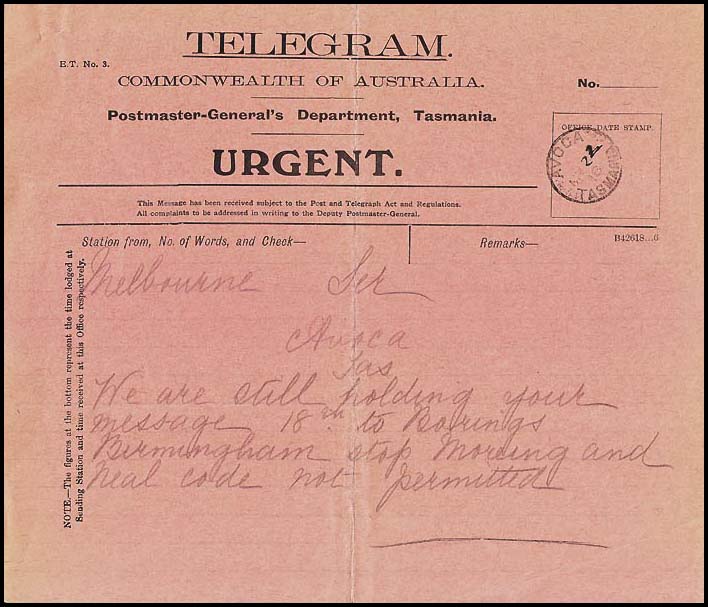 TELEGRAM.
E.T. No. 3.
COMMONWEALTH OF AUSTRALIA.
No.
Postmaster-General's Department, Tasmania.
OFFICE DATE STAMP.
AVOCA
TASMANIA
URGENT.
This Message has been received subject to the Post and Telegraph Act and Regulations.
All complaints to be addressed in writing to the Deputy Postmaster-General.
B42618...6
Station from, No. of Words, and Check—
Remarks—
NOTE.—The figures at the bottom represent the time lodged at
Sending Station and time received at this Office respectively.
Melbourne Ser
Avoca
Tas
We are still holding your
message 18th to Barings
Birmingham stop Moreing and
Neal code not permitted